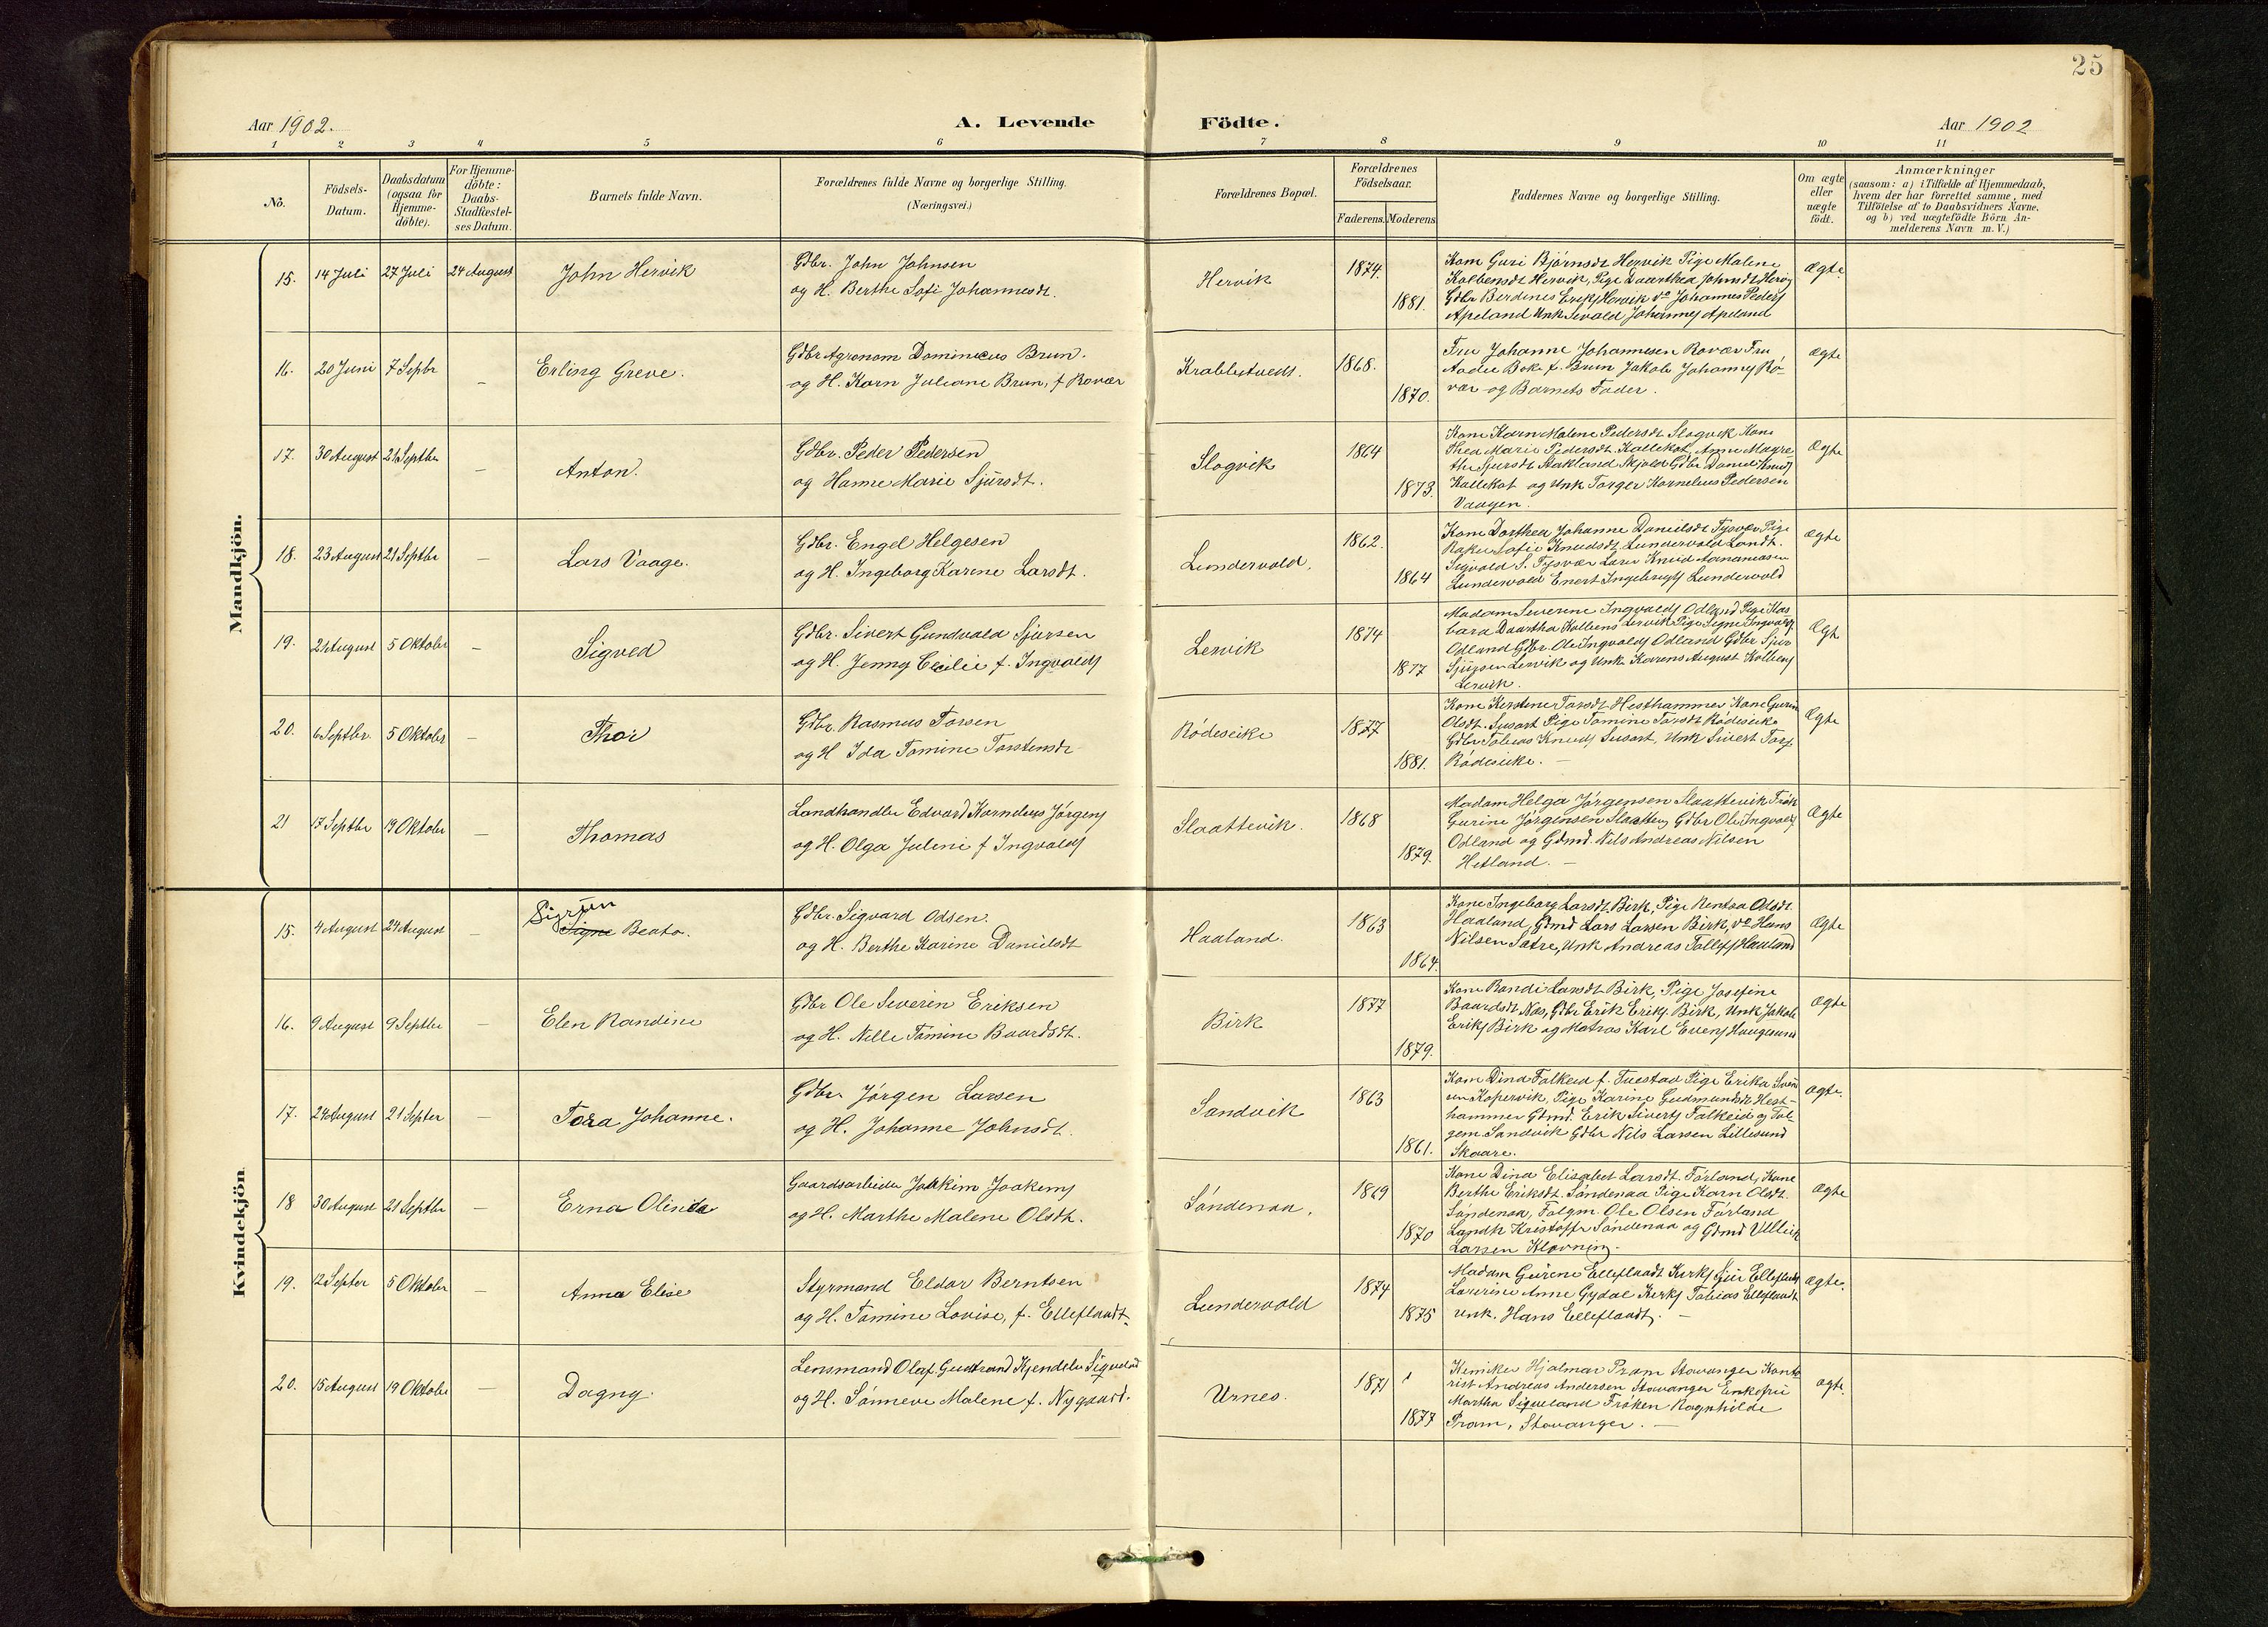 25
Aar 1902.
A. Levende
Födte.
Aar 1902
1 2 3 4 5 6 7 8 9 10 11
No.
Födsels-
Datum.
Daabsdatum
(ogsaa for
Hjemme-
döbte).
For Hjemme-
döbte:
Daabs-
Stadfæstel-
ses Datum.
Barnets fulde Navn.
Forældrenes fulde Navne og borgerlige Stilling.
(Næringsvei.)
Forældrenes Bopæl.
Forældrenes
Födselsaar.
Faderens. Moderens
Faddernes Navne og borgerlige Stilling.
Om ægte
eller
uægte
födt.
Anmærkninger
(saasom: a) i Tilfælde af Hjemmedaab,
hvem der har forrettet samme, med
Tilföielse af to Daabsvidners Navne,
og b) ved uægtefödte Börn An-
melderens Navn m. V.)
Mandkjön.
15. 14 Juli 27 Juli 24 August John Hervik
Gdbr. John Johnsen
og H. Berthe Sofi Johannesdt.
Hervik
1874.
1881.
Kone Guri Bjørnsdt Hervik Pige Malene
Kolbensdt Hervik, Pige Daarthea Johnsdt Hervig
Gdbr Berdines Eriks Hervik do Johannes Peders
Apeland Unk Sevald Johannes Apeland
Ægte.
16. 20 Juni 7 Septbr - Erling Greve.
Gdbr Agronom Dominicus Brun.
og H. Karn Juliane Brun, f Rovær
Krabbetvedt.
1868.
1870.
Fru Johanne Johannesen Rovær Fru
Aadie Boke f. Brun Jakob Johannes Rö-
vær og Barnets Fader.
Ægte
17. 30 August 21 Septbr - Anton.
Gdbr. Peder Pedersen
og Hanne Marie Sjursdt.
Slogvik
1864
1873.
Kone Karn Malene Pedersdt Slogvik Kone
Thea Marie Pedersdt Kallekot, Anne Magre-
the Sjursdt Stakland Skjold Gdbr Daniel Knuds
Kallekot og Unk Torger Kornelius Pedersen
Vaagen.
Ægte
18. 23 August 21 Septbr - Lars Vaage.
Gdbr. Engel Helgesen
og H. Ingeborg Karine Larsdt.
Lundervold.
1862.
1864
Kone Dorthea Johanne Danielsdt Tysvær Pige
Rakel Sofie Knudsdt Lundervold Landh.
Sigvald S. Tysvær Lærer Knud Aanansen
Lundervold Enert Ingebrigts Lundervold
Ægte
19. 21 August 5 Oktober - Sigved
Gdbr. Sivert Gundvald Sjursen
og H. Jenny Cecilie f. Ingvalds
Lervik
1874
1877
Madam Severine Ingvalds Odland Pige Bar
bara Daartha Kolbens Lervik Pige Signe Ingvalds
Odland Gdbr. Ole Ingvalds Odland Gdbr Sjur
Sjursen Lervik og Unk Karens August Kolbens
Lervik.
Ægte
20. 6 Septbr. 5 Oktober - Thor
Gdbr. Rasmus Torsen
og H Ida Tomine Torstensdt
Rödeseike
1877
1881.
Kone Kerstine Torsdt Hesthammer Kone Gurine
Olsdt. Susort Pige Tomine Torsdt Rödeseike
Gdbr Tobias Knuds Susort, Unk Sivert Tors
Rödeseike. -
Ægte
21 17 Septbr 19 Oktober - Thomas
Landhandler Edvard Kornelius Jörgens
og H. Olga Juline f Ingvalds
Slaattevik.
1868
1879.
Madam Helga Jörgensen Slaattevik Frök
Gurine Jörgensen Slaattev Gdbr Ole Ingvalds
Odland og Gdmd. Nils Andreas Nilsen
Hetland. -
Ægte
Kvindekjön
15. 4 August 24 August - Sigrun
Signe Beata.
Gdbr. Sigvard Odsen.
og H. Berthe Karine Danielsdt
Haaland.
1863
1864.
Kone Ingeborg Larsdt. Birk, Pige Rentsa Olsdt
Haaland, Gdmd Lars Larsen Birk, do Hans
Nilsen Satre, Unk Andreas Tollefs Hauland
Ægte
16. 9 August 9 Septbr - Elen Randine
Gdbr Ole Severin Eriksen
og H. Nille Tomine Baardsdt.
Birk
1877
1879.
Kone Randi Larsdt Birk, Pige Josefine
Baardsdt Næs, Gdbr Erik Eriks. Birk, Unk Jakob
Eriks Birk og Matros Karl Evens Haugesund
Ægte
17. 24 August 21 Septer - Tora Johanne.
Gdbr Jörgen Larsen
og H. Johanne Johnsdt.
Sandvik
1863
1861.
Kone Dina Falkeid f. Tuestad Pige Erika Svein
sen Kopervik, Pige Karine Gudmundsdt Hest-
hammer Gdmd. Erik Siverts Falkeid og Tol-
gem Sandvik Gdbr Nils Larsen Lillesund
Skaare.
Ægte.
18 30 August 21 Septbr - Erna Olinda
Gaardsarbeider Joakim Joakems
og H. Marthe Malene Olsdt.
Söndenaa.
1869
1870
Kone Dina Elisabet Larsdt. Förland, Kone
Berthe Eriksdt. Söndenaa Pige Karn Olsdt.
Söndenaa, Folgm. Ole Olsen Förland
Landh Kristoffr Söndenaa og Gdmd Ullrich
Larsen Klovning.
Ægte
19. 12 Septer 5 Oktober - Anna Elise
Styrmand Eldar Berntsen
og H. Tomine Lovise, f. Elleflaadt.
Lundervold
1874
1875
Madam Gurine Elleflaadt Kirks Sjur Elleflaadt
Lærerinde Anne Gydal Kirks Tobias Elleflaadt
unk. Hans Elleflaadt. -
Ægte.
20. 15 August 19 Oktober - Dagny.
Lensmand Olaf Gudtrand Kjendelv Sigveland
og H. Sönneve Malene f. Nygaard.
Urnes.
1871
1877
Kemiker Hjalmar Pram Stavanger Konto
rist Andreas Andersen Stavanger Enkefru
Martha Sigveland Fröken Ragnhilde
Pram, Stavanger. -
Ægte.